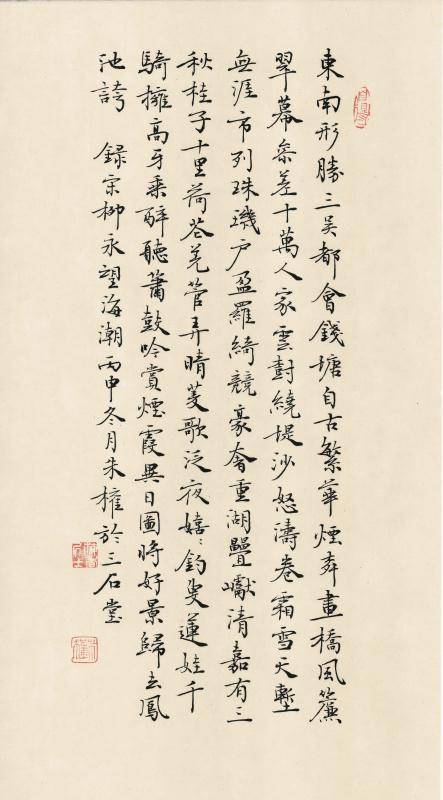 東南形勝三吳都會錢塘自古繁華煙柳畫橋風簾
翠幕參差十萬人家雲樹繞堤沙怒濤卷霜雪天塹
無涯市列珠璣戶盈羅綺競豪奢重湖疊巘清嘉有三
秋桂子十里荷花羌管弄晴菱歌泛夜嬉〻釣叟蓮娃千
騎擁高牙乘醉聽簫鼓吟賞煙霞異日圖將好景歸去鳳
池誇 録宋柳永望海潮丙申冬月朱權於三石堂